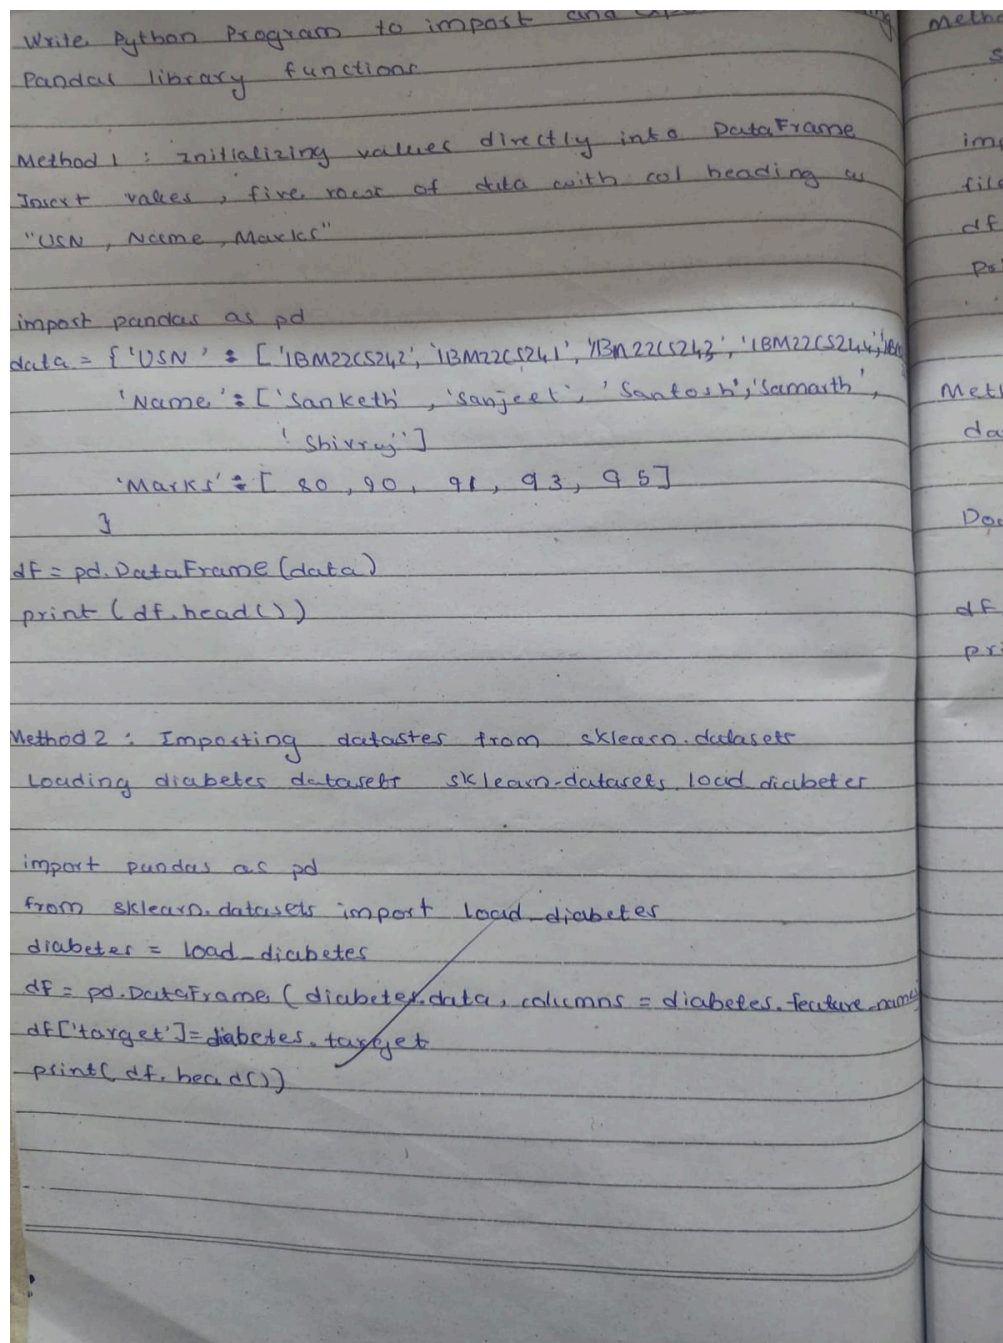 Write Python Program to import and
Pandas library functions
Method 1 : Initializing values directly into DataFrame
Insert values , five rows of data with col heading as
"USN , Name , Marks"
import pandas as pd
data = {'USN' : ['1BM22CS242', '1BM22CS241', '1BM22CS243', '1BM22CS244',
'Name' : ['Sanketh' , 'Sanjeet', 'Santosh', 'Samarth',
'Shivraj']
'Marks' : [ 80 , 90, 91 , 93, 95]
}
df = pd.DataFrame (data)
print ( df.head())
Method 2 : Importing datastes from sklearn.datasets
Loading diabetes datasets sklearn-datasets. load_diabetes
import pandas as pd
from sklearn.datasets import load_diabetes
diabetes = load_diabetes
df = pd.DataFrame ( diabetes.data, columns = diabetes.feature_names
df['target'] = diabetes.target
print( df.head())
Metho
s
imp
file
df
Pri
Met
da
df
pri